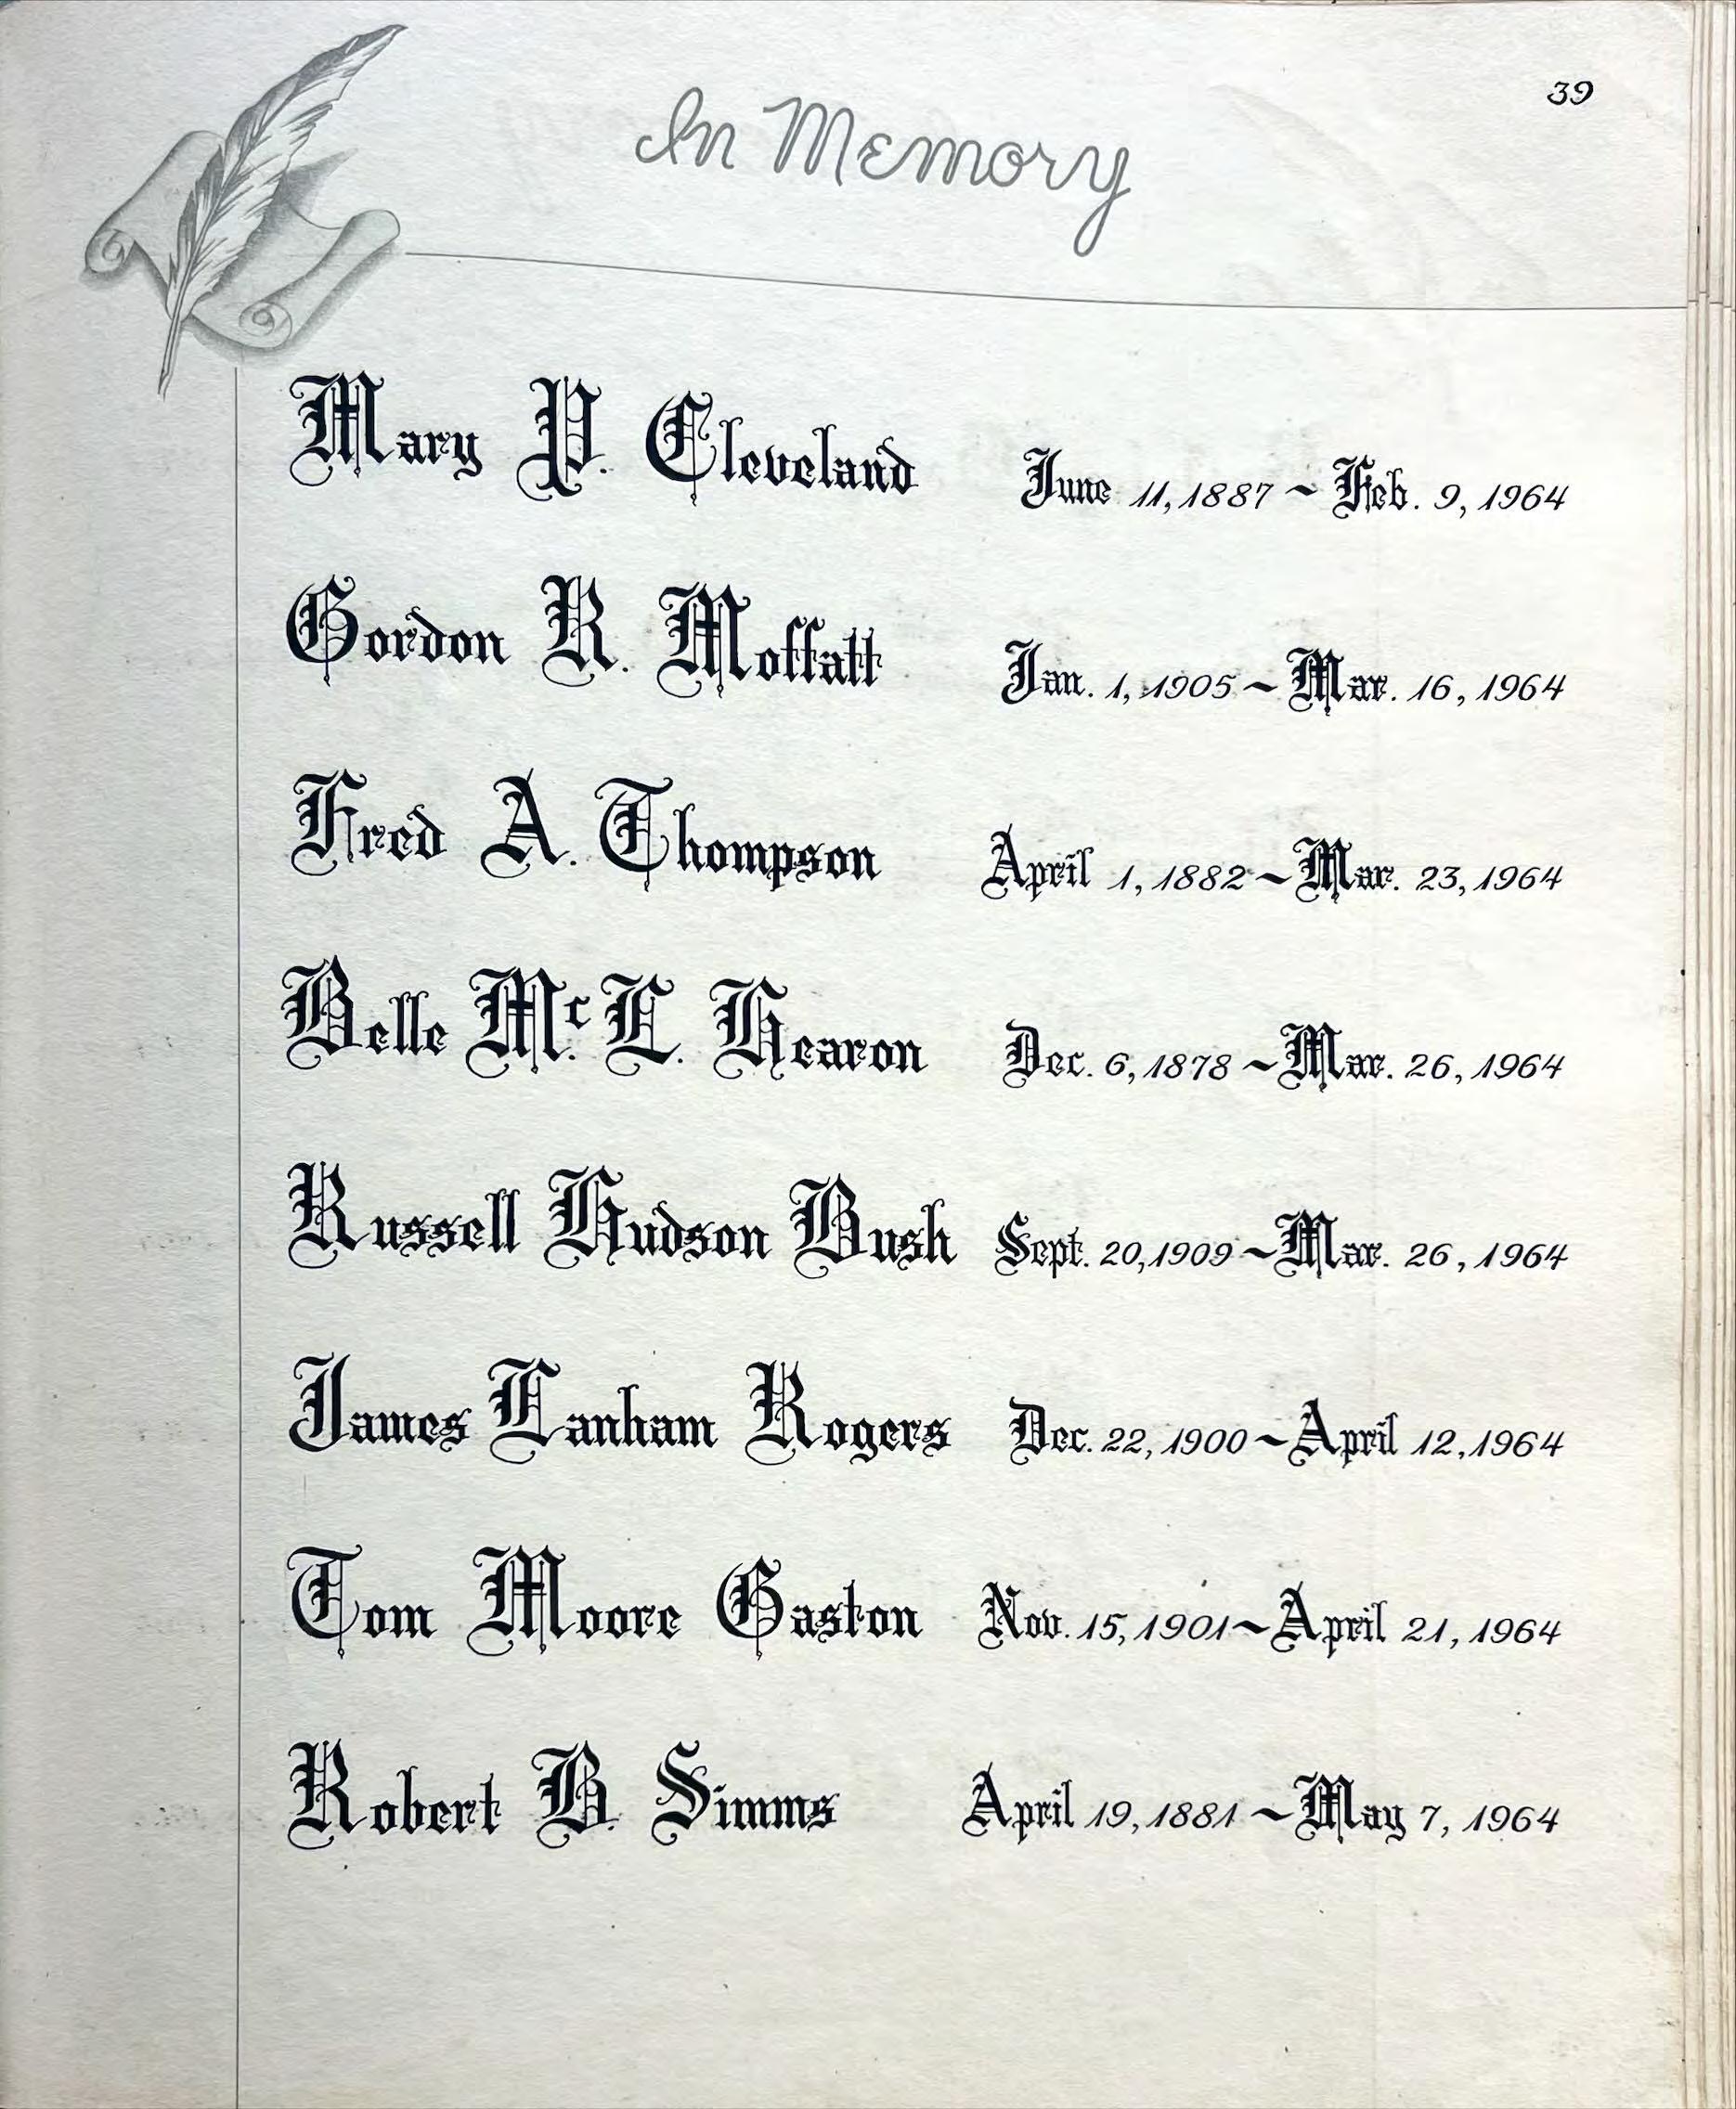 39
In Memory
Mary P. Cleveland June 11, 1887 ~ Feb. 9, 1964
Gordon R. Moffatt Jan. 1, 1905 ~ Mar. 16, 1964
Fred A. Thompson April 1, 1882 ~ Mar. 23, 1964
Belle Mc. L. Hearon Dec. 6, 1878 ~ Mar. 26, 1964
Russell Hudson Bush Sept. 20, 1909 ~ Mar. 26, 1964
James Lanham Rogers Dec. 22, 1900 ~ April 12, 1964
Tom Moore Gaston Nov. 15, 1901 ~ April 21, 1964
Robert B. Simms April 19, 1881 ~ May 7, 1964